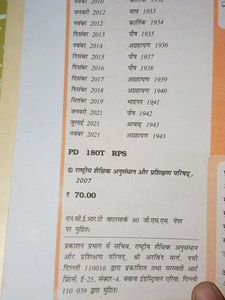 नवंबर 2010 कार्तिक 1932
जनवरी 2012 माघ 1933
नवंबर 2012 कार्तिक 1934
दिसंबर 2013 पौष 1935
नवंबर 2014 अग्रहायण 1936
दिसंबर 2015 पौष 1937
दिसंबर 2016 पौष 1938
दिसंबर 2017 अग्रहायण 1939
दिसंबर 2018 अग्रहायण 1940
सितंबर 2019 भाद्रपद 1941
जनवरी 2021 पौष 1942
जुलाई 2021 आषाढ़ 1943
नवंबर 2021 अग्रहायण 1943
PD 180T RPS
© राष्ट्रीय शैक्षिक अनुसंधान और प्रशिक्षण परिषद्,
2007
₹ 70.00
एन.सी.ई.आर.टी वाटरमार्क 80 जी.एस.एम. पेपर
पर मुद्रित।
प्रकाशन प्रभाग में सचिव, राष्ट्रीय शैक्षिक अनुसंधान
और प्रशिक्षण परिषद्, श्री अरविंद मार्ग, नयी
दिल्ली 110016 द्वारा प्रकाशित तथा सरस्वती आर्ट
प्रिंटर्स, ई-25, सेक्टर-4, बवाना इंडस्ट्रियल एरिया, दिल्ली
110 039 द्वारा मुद्रित।